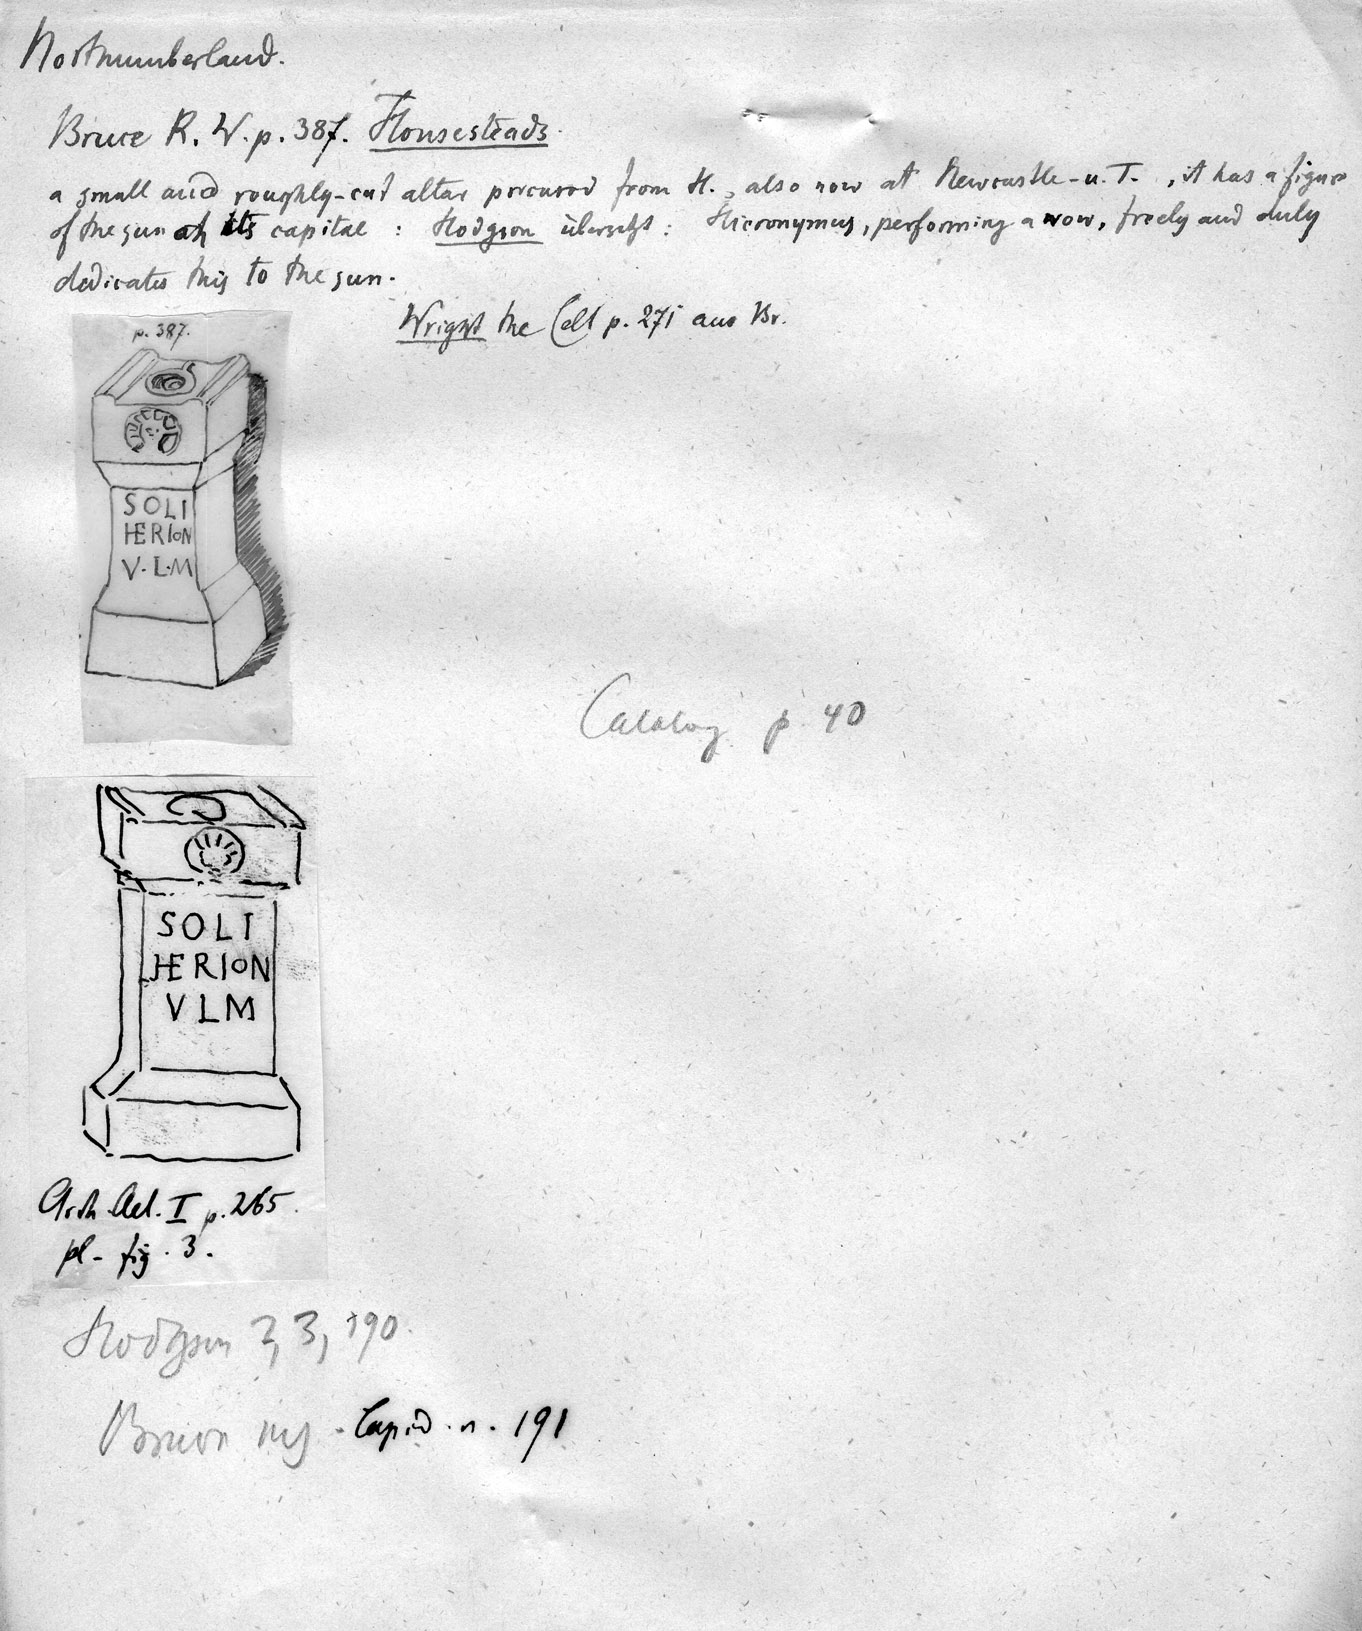 Northumberland.
Bruce R. W. p. 387. Housesteads.
a small and roughly-cut altar procured from H., also now at Newcastle-u. T., it has a figure
of the sun on its capital: Hodgson übersetzt: Hieronymus, performing a vow, freely and duly
dedicates this to the sun.
Wright the Celt p. 271 aus Br.
p. 387.
SOLI
HERION
V·L·M
Catalog p 40
SOLI
HERION
VLM
Arch. Ael. I p. 265.
pl- fig. 3.
Hodgson 2, 3, 190.
Bruce Lapid. n. 191